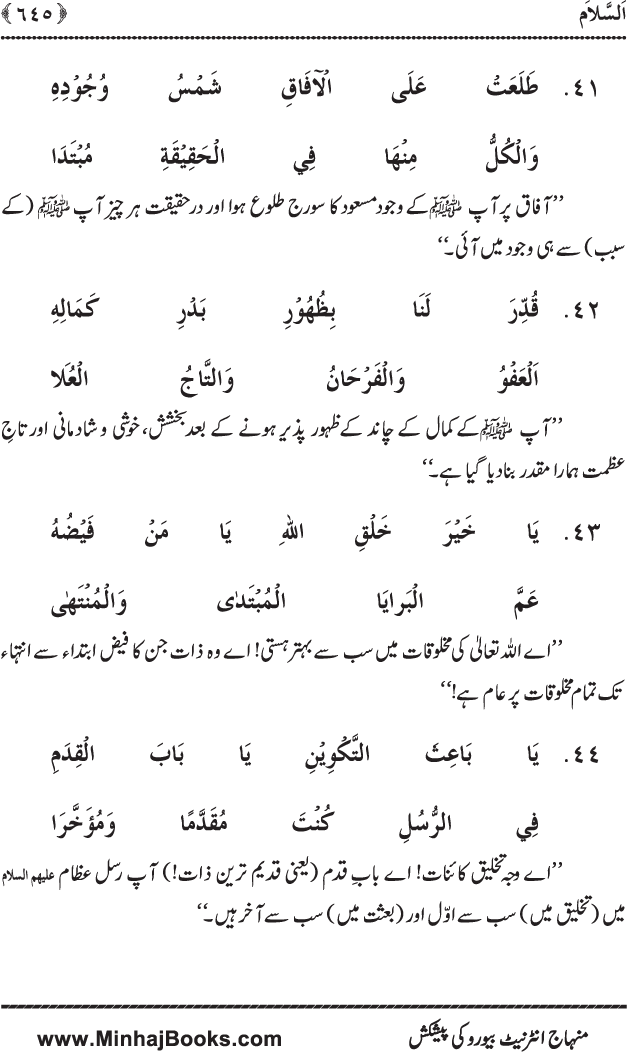 اَلسَّلَام ﴿٦٤٥﴾
٤١. طَلَعَتْ عَلَى الْآفَاقِ شَمْسُ وُجُوْدِهِ
وَالْكُلُّ مِنْهَا فِي الْحَقِيْقَةِ مُبْتَدَا
’’آفاق پر آپ ﷺ کے وجود مسعود کا سورج طلوع ہوا اور درحقیقت ہر چیز آپ ﷺ (کے
سبب) سے ہی وجود میں آئی۔‘‘
٤٢. قُدِّرَ لَنَا بِظُهُوْرِ بَدْرِ كَمَالِهِ
اَلْعَفْوُ وَالْفَرْحَانُ وَالتَّاجُ الْعُلَا
’’آپ ﷺ کے کمال کے چاند کے ظہور پذیر ہونے کے بعد بخشش، خوشی و شادمانی اور تاجِ
عظمت ہمارا مقدر بنا دیا گیا ہے۔‘‘
٤٣. يَا خَيْرَ خَلْقِ اللهِ يَا مَنْ فَيْضُهُ
عَمَّ الْبَرايَا الْمُبْتَدٰى وَالْمُنْتَهٰى
’’اے اللہ تعالیٰ کی مخلوقات میں سب سے بہتر ہستی! اے وہ ذات جن کا فیض ابتداء سے انتہاء
تک تمام مخلوقات پر عام ہے!‘‘
٤٤. يَا بَاعِثَ التَّكْوِيْنِ يَا بَابَ الْقِدَمِ
فِي الرُّسُلِ كُنْتَ مُقَدَّمًا وَمُؤَخَّرَا
’’اے وجہ تخلیق کائنات! اے بابِ قدم (یعنی قدیم ترین ذات!) آپ رسل عظام علیہم السلام
میں (تخلیق میں) سب سے اوّل اور (بعثت میں) سب سے آخر ہیں۔‘‘
منہاج انٹرنیٹ بیورو کی پیشکش www.MinhajBooks.com